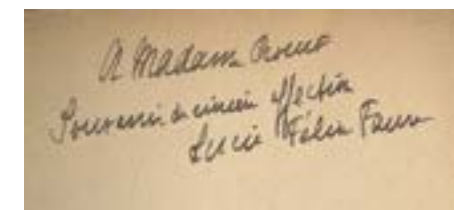 A Madame Proust
Souvenir de sincère affection
Lucie Félix Faure